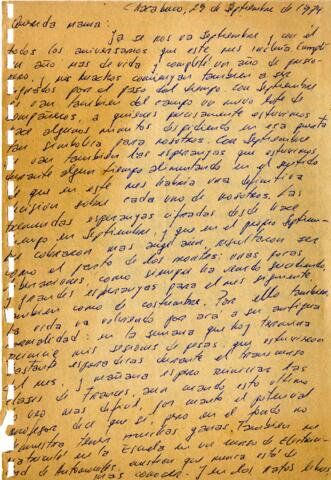 Chacabuco, 29 de Septiembre de 1974
Querida mama:
Ya se nos va Septiembre y con él
todos los aniversarios que este mes incluía. Cumplí
un año más de vida y cumplí un año de prisio-
nero. Y mis muchos comienzan también a ser
por el paso del tiempo. Con Septiembre
se van también del campo un nuevo lote de
compañeros, a quienes precisamente estuvimos
hace algunos minutos despidiendo en esa puerta
tan simbólica para nosotros. Con Septiembre
se van también las esperanzas que estuvimos
durante algún tiempo alimentando en el sentido
de que en este mes habría una definitiva
decisión sobre cada uno de nosotros. Las
tremendas esperanzas cifradas desde hace
tiempo en Septiembre, y que en el propio Septiem-
bre cobraron mas auge aun, resultaron ser
como el parto de los montes: unas pocas
liberaciones, como siempre ha venido sucediendo
y grandes esperanzas para el mes siguiente
también como de costumbre. Por ello también
la vida va volviendo por acá a su antigua
normalidad: en la semana que hoy termina
reinicié mis sesiones de pesas, que estuvieron
bastante esporádicas durante el transcurso
del mes. Y mañana espero reiniciar las
clases de Frances, aun cuando esto último
es más difícil, por cuanto el potencial
profesor dice que si, pero en el fondo no
demuestra tener muchas ganas. También me
matriculé en la Escuela en un curso de Electrici-
dad de Automóviles, cuestión que nunca está de
mas conocer. Y en los ratos libres